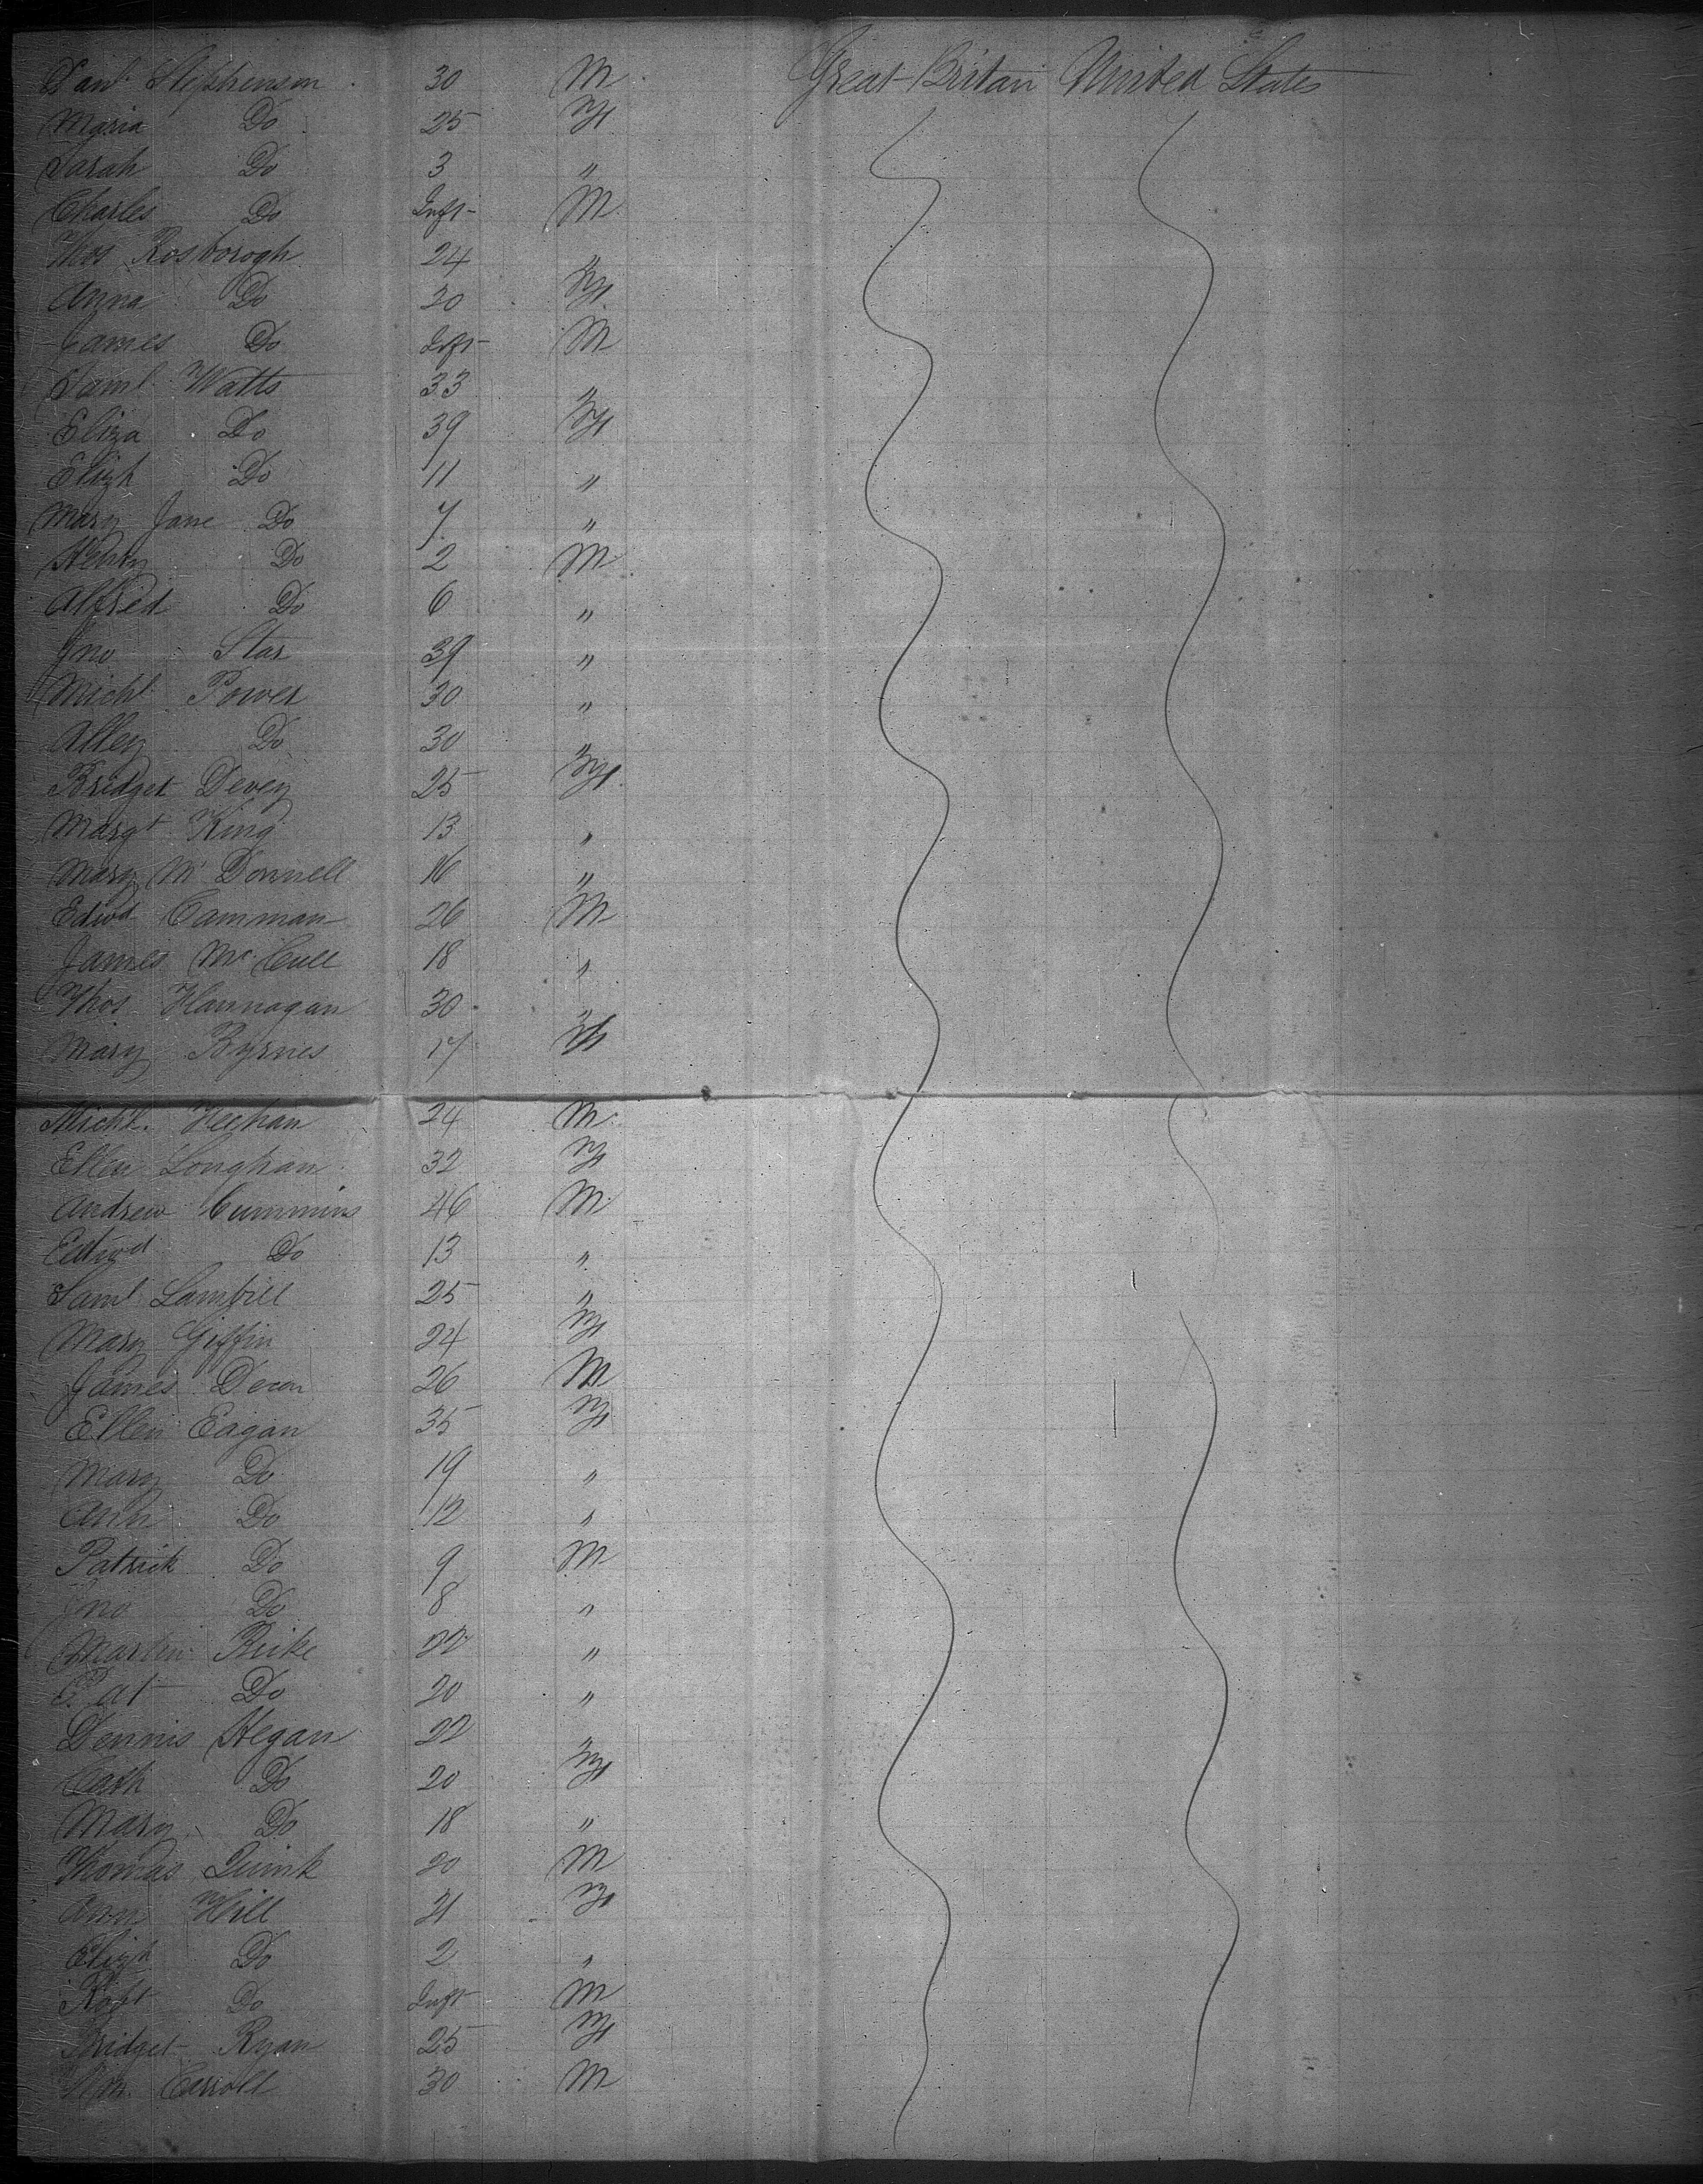 Saml Stephenson 30 M Great Britain United States
Maria Do 25 F
Sarah Do 3 "
Charles Do Inft M
Thos Rosborogh 24 "
Anna Do 20 F
James Do Inft M
Saml Watts 33 "
Eliza Do 39 F
Elizh Do 11 "
Mary Jane Do 7 "
Henry Do 2 M
Alfred Do 6 "
Jno Star 39 "
Michl Power 30 "
Alley Do 30 "
Bridget Devey 25 F
Margt King 13 "
Mary Mc Donnell 16 "
Edwd Camman 26 M
James Mc Cull 18 "
Thos Hannagan 30 "
Mary Byrnes 17 F
Michl. Heehan 24 M
Ellen Longhan 32 F
Andrew Cummins 46 M
Edwd Do 13 "
Saml Lambill 25 "
Mary Giffin 24 F
James 26 M
Ellen Eagan 35 F
Mary Do 19 "
Ann Do 12 "
Patrick Do 9 M
Jno Do 8 "
Martin 22 "
Pat Do 20 "
Dennis Hegan 22 "
Cath Do 20 F
Mary Do 18 "
Thomas Quink 20 M
Ann Hill 21 F
Elizh Do 2 "
Robt Do Inft M
Bridget Ryan 25 F
Wm. Carroll 30 M